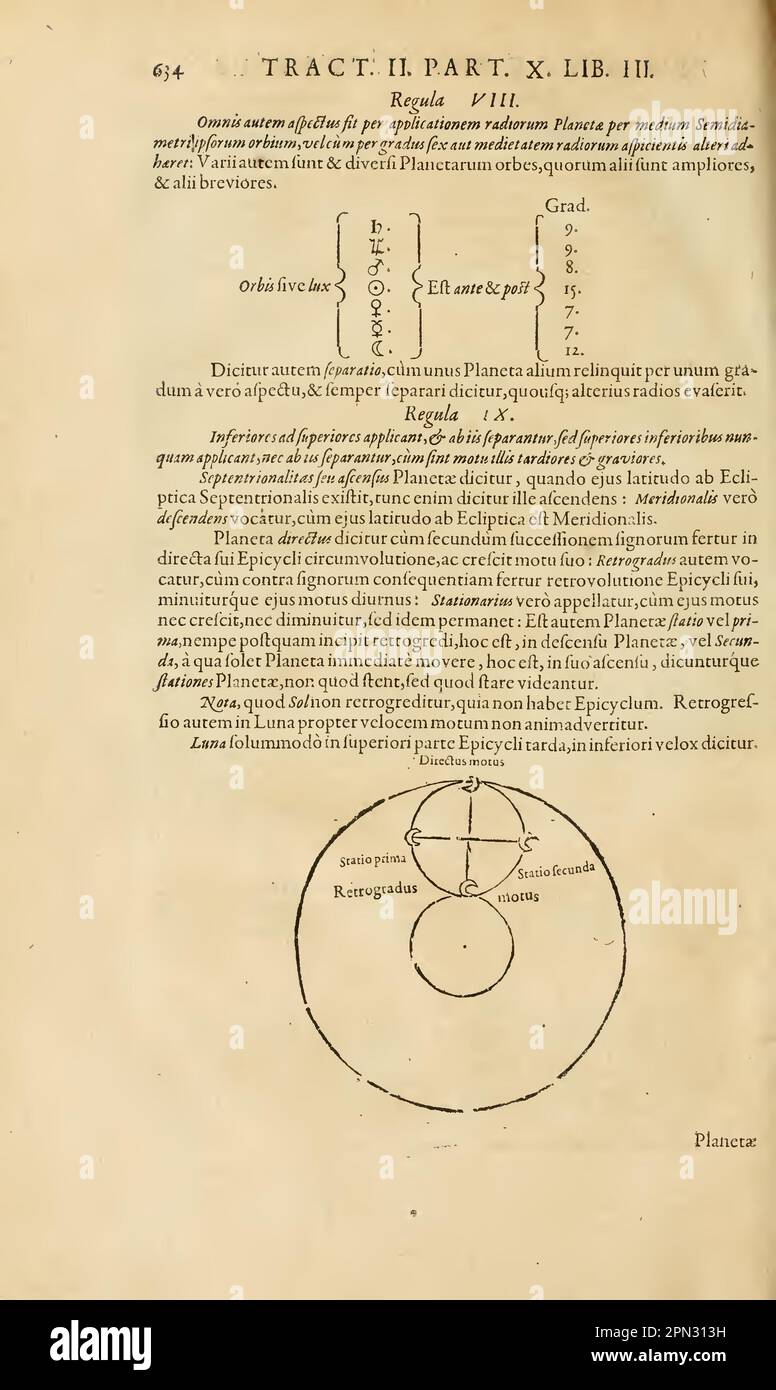 634 TRACT. II. PART. X. LIB. III.
Regula VIII.
Omnis autem aſpectus fit per applicationem radiorum Planetæ per medium Semidia-
metri ipſorum orbium, vel cùm per gradus ſex aut medietatem radiorum aſpicientis alteri ad-
hæret: Varii autem ſunt & diverſi Planetarum orbes, quorum alii ſunt ampliores,
& alii breviores.
Grad.
♄. 9.
♃. 9.
♂. 8.
Orbis ſive lux ☉. Eſt ante & poſt 15.
♀. 7.
☿. 7.
☾. 12.
Dicitur autem ſeparatio, cùm unus Planeta alium relinquit per unum gra-
dum à veró aſpectu, & ſemper ſeparari dicitur, quouſq; alterius radios evaſerit.
Regula IX.
Inferiores ad ſuperiores applicant, & ab iis ſeparantur, ſed ſuperiores inferioribus nun-
quam applicant, nec ab iis ſeparantur, cùm ſint motu illis tardiores & graviores.
Septentrionalitas ſeu aſcenſus Planetæ dicitur, quando ejus latitudo ab Ecli-
ptica Septentrionalis exiſtit, tunc enim dicitur ille aſcendens: Meridionalis verò
deſcendens vocâtur, cùm ejus latitudo ab Ecliptica eſt Meridionalis.
Planeta directus dicitur cùm ſecundùm ſucceſſionem ſignorum fertur in
directa ſui Epicycli circumvolutione, ac creſcit motu ſuo: Retrogradus autem vo-
catur, cùm contra ſignorum conſequentiam fertur retrovolutione Epicycli ſui,
minuiturq́ue ejus motus diurnus: Stationarius verò appellatur, cùm ejus motus
nec creſcit, nec diminuitur, ſed idem permanet: Eſt autem Planetæ ſtatio vel pri-
ma, nempe poſtquam incipit retrogredi, hoc eſt, in deſcenſu Planetæ, vel Secun-
da, à qua ſolet Planeta immediatè movere, hoc eſt, in ſuo aſcenſu, dicunturq́ue
ſtationes Planetæ, non quod ſtent, ſed quod ſtare videantur.
Nota, quod Sol non retrogreditur, quia non habet Epicyclum. Retrogreſ-
ſio autem in Luna propter velocem motum non animadvertitur.
Luna ſolummodò in ſuperiori parte Epicycli tarda, in inferiori velox dicitur.
Directus motus
Statio prima
Statio ſecunda
Retrogradus motus
Planetæ
alamy
alamy
alamy
alamy
a
alamy
Image ID: 2PN313H
www.alamy.com